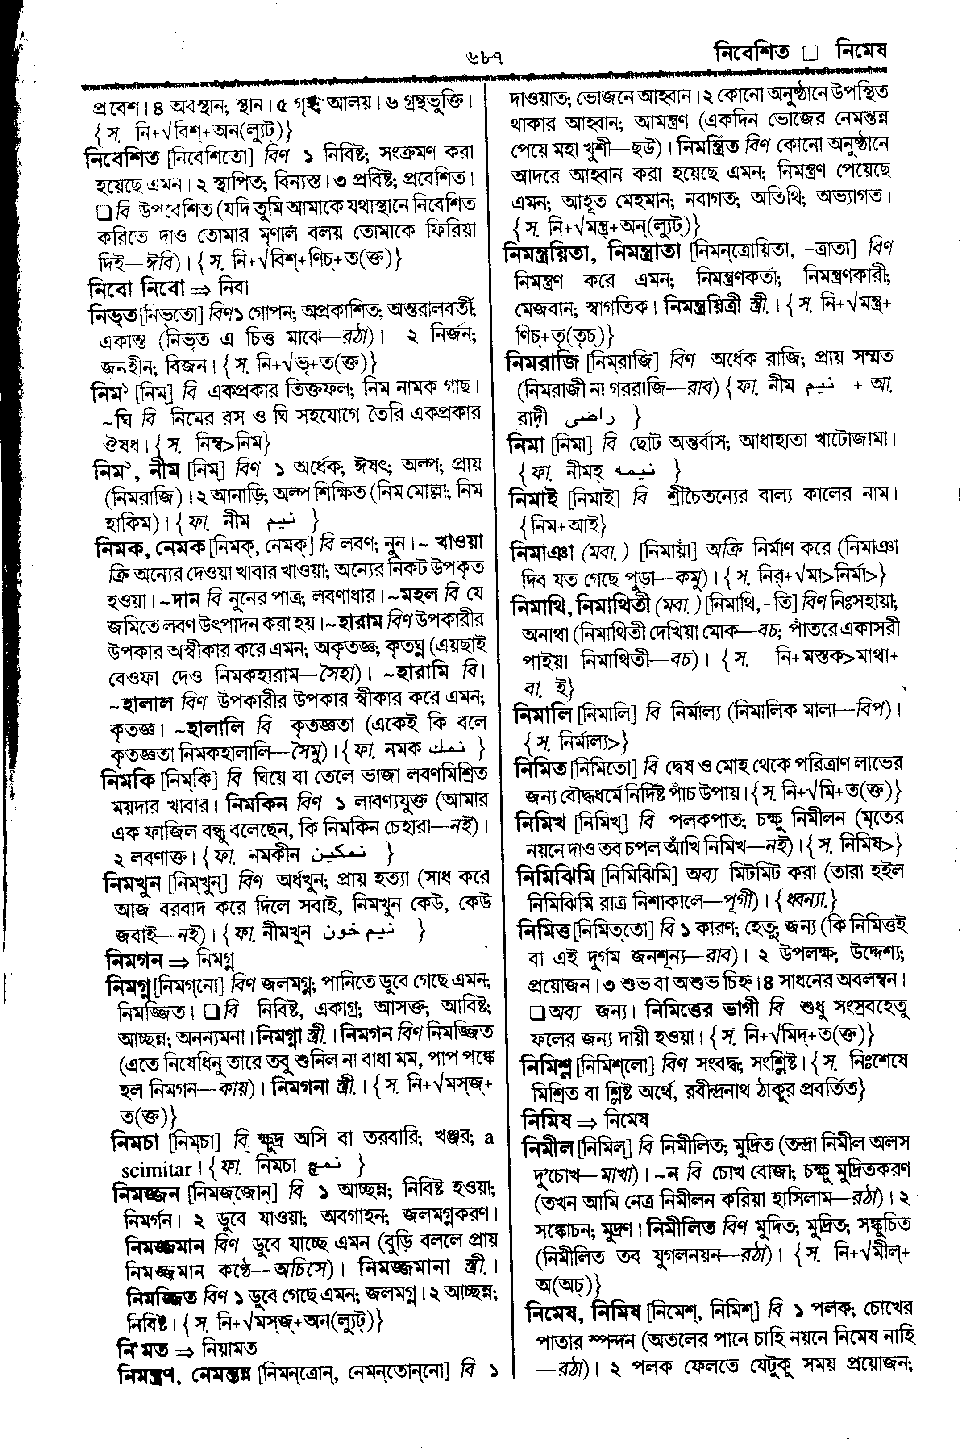 ৬৪৭
নিবেশিত □ নিমেষ
প্রবেশ। ৪ অবস্থান; স্থান। ৫ গৃহ; আলয়। ৬ গ্রন্থভুক্তি।
{স. নি+√বিশ্+অন(ল্যুট)}
নিবেশিত [নিবেশিতো] বিণ ১ নিবিষ্ট; সংক্রমণ করা
হয়েছে এমন। ২ স্থাপিত; বিন্যস্ত। ৩ প্রবিষ্ট; প্রবেশিত।
□ বি উপবেশিত (যদি তুমি আমাকে যথাস্থানে নিবেশিত
করিতে দাও তোমার মৃণাল বলয় তোমাকে ফিরিয়া
দিই—ঈবি)। {স. নি+√বিশ্+ণিচ্+ত(ক্ত)}
নিবো নিবো ⇒ নিবা
নিভৃত [নিভৃতো] বিণ ১ গোপন; অপ্রকাশিত; অন্তরালবর্তী;
একান্ত (নিভৃত এ চিত্ত মাঝে—রঠা)। ২ নির্জন;
জনহীন; বিজন। {স. নি+√ভৃ+ত(ক্ত)}
নিম১ [নিম্] বি একপ্রকার তিক্তফল; নিম নামক গাছ।
~ঘি বি নিমের রস ও ঘি সহযোগে তৈরি একপ্রকার
ঔষধ। {স. নিম্ব>নিম}
নিম২, নীম [নিম্] বিণ ১ অর্ধেক; ঈষৎ; অল্প; প্রায়
(নিমরাজি)। ২ আনাড়ি; অল্প শিক্ষিত (নিম মোল্লা; নিম
হাকিম)। {ফা. নীম نیم }
নিমক, নেমক [নিমক্, নেমক্] বি লবণ; নুন। ~ খাওয়া
ক্রি অন্যের দেওয়া খাবার খাওয়া; অন্যের নিকট উপকৃত
হওয়া। ~দান বি নুনের পাত্র; লবণাধার। ~মহল বি যে
জমিতে লবণ উৎপাদন করা হয়। ~হারাম বিণ উপকারীর
উপকার অস্বীকার করে এমন; অকৃতজ্ঞ; কৃতঘ্ন (এয়ছাই
বেওফা দেও নিমকহারাম—সৈহা)। ~হারামি বি।
~হালাল বিণ উপকারীর উপকার স্বীকার করে এমন;
কৃতজ্ঞ। ~হালালি বি কৃতজ্ঞতা (একেই কি বলে
কৃতজ্ঞতা নিমকহালালি—সৈমু)। {ফা. নমক نمك }
নিমকি [নিম্‌কি] বি ঘিয়ে বা তেলে ভাজা লবণমিশ্রিত
ময়দার খাবার। নিমকিন বিণ ১ লাবণ্যযুক্ত (আমার
এক ফাজিল বন্ধু বলেছেন, কি নিমকিন চেহারা—নই)।
২ লবণাক্ত। {ফা. নমকীন نمكين }
নিমখুন [নিম্‌খুন্] বিণ অর্ধখুন; প্রায় হত্যা (সাধ করে
আজ বরবাদ করে দিলে সবাই, নিমখুন কেউ, কেউ
জবাই—নই)। {ফা. নীমখূন نیم خون }
নিমগন ⇒ নিমগ্ন
নিমগ্ন [নিমগ্‌নো] বিণ জলমগ্ন; পানিতে ডুবে গেছে এমন;
নিমজ্জিত। □ বি নিবিষ্ট, একাগ্র; আসক্ত; আবিষ্ট;
আচ্ছন্ন; অনন্যমনা। নিমগ্না স্ত্রী.। নিমগন বিণ নিমজ্জিত
(এতে নিষেধিনু তারে তবু শুনিল না বাধা মম, পাপ পঙ্কে
হল নিমগন—কায়)। নিমগনা স্ত্রী.। {স. নি+√মস্‌জ্+
ত(ক্ত)}
নিমচা [নিম্‌চা] বি ক্ষুদ্র অসি বা তরবারি; খঞ্জর; a
scimitar। {ফা. নিমচা نمچ }
নিমজ্জন [নিমজ্‌জোন্] বি ১ আচ্ছন্ন; নিবিষ্ট হওয়া;
নিমর্গন। ২ ডুবে যাওয়া; অবগাহন; জলমগ্নকরণ।
নিমজ্জমান বিণ ডুবে যাচ্ছে এমন (বুড়ি বললে প্রায়
নিমজ্জমান কণ্ঠে—অচিসে)। নিমজ্জমানা স্ত্রী.।
নিমজ্জিত বিণ ১ ডুবে গেছে এমন; জলমগ্ন। ২ আচ্ছন্ন;
নিবিষ্ট। {স. নি+√মস্‌জ্+অন(ল্যুট)}
নিমত ⇒ নিয়ামত
নিমন্ত্রণ, নেমন্তন্ন [নিমন্‌ত্রোন্, নেমন্‌তোন্‌নো] বি ১
দাওয়াত; ভোজনে আহ্বান। ২ কোনো অনুষ্ঠানে উপস্থিত
থাকার আহ্বান; আমন্ত্রণ (একদিন ভোজের নেমন্তন্ন
পেয়ে মহা খুশী—ছউ)। নিমন্ত্রিত বিণ কোনো অনুষ্ঠানে
আদরে আহ্বান করা হয়েছে এমন; নিমন্ত্রণ পেয়েছে
এমন; আহূত মেহমান; নবাগত; অতিথি; অভ্যাগত।
{স. নি+√মন্ত্র্+অন্(ল্যুট)}
নিমন্ত্রয়িতা, নিমন্ত্রাতা [নিমন্‌ত্রোয়িতা, -ত্রাতা] বিণ
নিমন্ত্রণ করে এমন; নিমন্ত্রণকর্তা; নিমন্ত্রণকারী;
মেজবান; স্বাগতিক। নিমন্ত্রয়িত্রী স্ত্রী.। {স. নি+√মন্ত্র্+
ণিচ্+তৃ(তৃচ্)}
নিমরাজি [নিম্‌রাজি] বিণ অর্ধেক রাজি; প্রায় সম্মত
(নিমরাজী না গররাজি—রাব) {ফা. নীম نیم + আ.
রাদী راضی }
নিমা [নিমা] বি ছোট অন্তর্বাস; আধাহাতা খাটোজামা।
{ফা. নীমহ্ نیمه }
নিমাই [নিমাই] বি শ্রীচৈতন্যের বাল্য কালের নাম।
{নিম+আই}
নিমাঞা (মবা.) [নিমায়াঁ] অক্রি নির্মাণ করে (নিমাঞা
দিব যত গেছে পুড়া—কমু)। {স. নির্+√মা>নির্মা>}
নিমাথি, নিমাথিতী (মবা.) [নিমাথি, -তি] বিণ নিঃসহায়া;
অনাথা (নিমাথিতী দেখিয়া মোক—বচ; পাঁতরে একাসরী
পাইয়া নিমাথিতী—বচ)। {স. নি+মস্তক>মাথা+
বা. ই}
নিমালি [নিমালি] বি নির্মাল্য (নিমালিক মালা—বিপ)।
{স. নির্মাল্য>}
নিমিত [নিমিতো] বি দ্বেষ ও মোহ থেকে পরিত্রাণ লাভের
জন্য বৌদ্ধধর্মে নির্দিষ্ট পাঁচ উপায়। {স. নি+√মি+ত(ক্ত)}
নিমিখ [নিমিখ্] বি পলকপাত; চক্ষু নিমীলন (মৃতের
নয়নে দাও তব চপল আঁখি নিমিখ—নই)। {স. নিমিষ>}
নিমিঝিমি [নিমিঝিমি] অব্য মিটমিট করা (তারা হইল
নিমিঝিমি রাত্র নিশাকালে—পূগী)। {ধ্বন্যা.}
নিমিত্ত [নিমিত্‌তো] বি ১ কারণ; হেতু; জন্য (কি নিমিত্তই
বা এই দুর্গম জনশূন্য—রাব)। ২ উপলক্ষ; উদ্দেশ্য;
প্রয়োজন। ৩ শুভ বা অশুভ চিহ্ন। ৪ সাধনের অবলম্বন।
□ অব্য জন্য। নিমিত্তের ভাগী বি শুধু সংস্রবহেতু
ফলের জন্য দায়ী হওয়া। {স. নি+√মিদ্+ত(ক্ত)}
নিমিশ্ল [নিমিশ্‌লো] বিণ সংবদ্ধ; সংশ্লিষ্ট। {স. নিঃশেষে
মিশ্রিত বা শ্লিষ্ট অর্থে, রবীন্দ্রনাথ ঠাকুর প্রবর্তিত}
নিমিষ ⇒ নিমেষ
নিমীল [নিমিল্] বি নিমীলিত; মুদ্রিত (তন্দ্রা নিমীল অলস
দু'চোখ—মাখা)। ~ন বি চোখ বোজা; চক্ষু মুদ্রিতকরণ
(তখন আমি নেত্র নিমীলন করিয়া হাসিলাম—রঠা)। ২
সঙ্কোচন; মুদ্রণ। নিমীলিত বিণ মুদিত; মুদ্রিত; সঙ্কুচিত
(নিমীলিত তব যুগলনয়ন—রঠা)। {স. নি+√মীল্+
অ(অচ্)}
নিমেষ, নিমিষ [নিমেশ্, নিমিশ্] বি ১ পলক; চোখের
পাতার স্পন্দন (অতলের পানে চাহি নয়নে নিমেষ নাহি
—রঠা)। ২ পলক ফেলতে যেটুকু সময় প্রয়োজন;